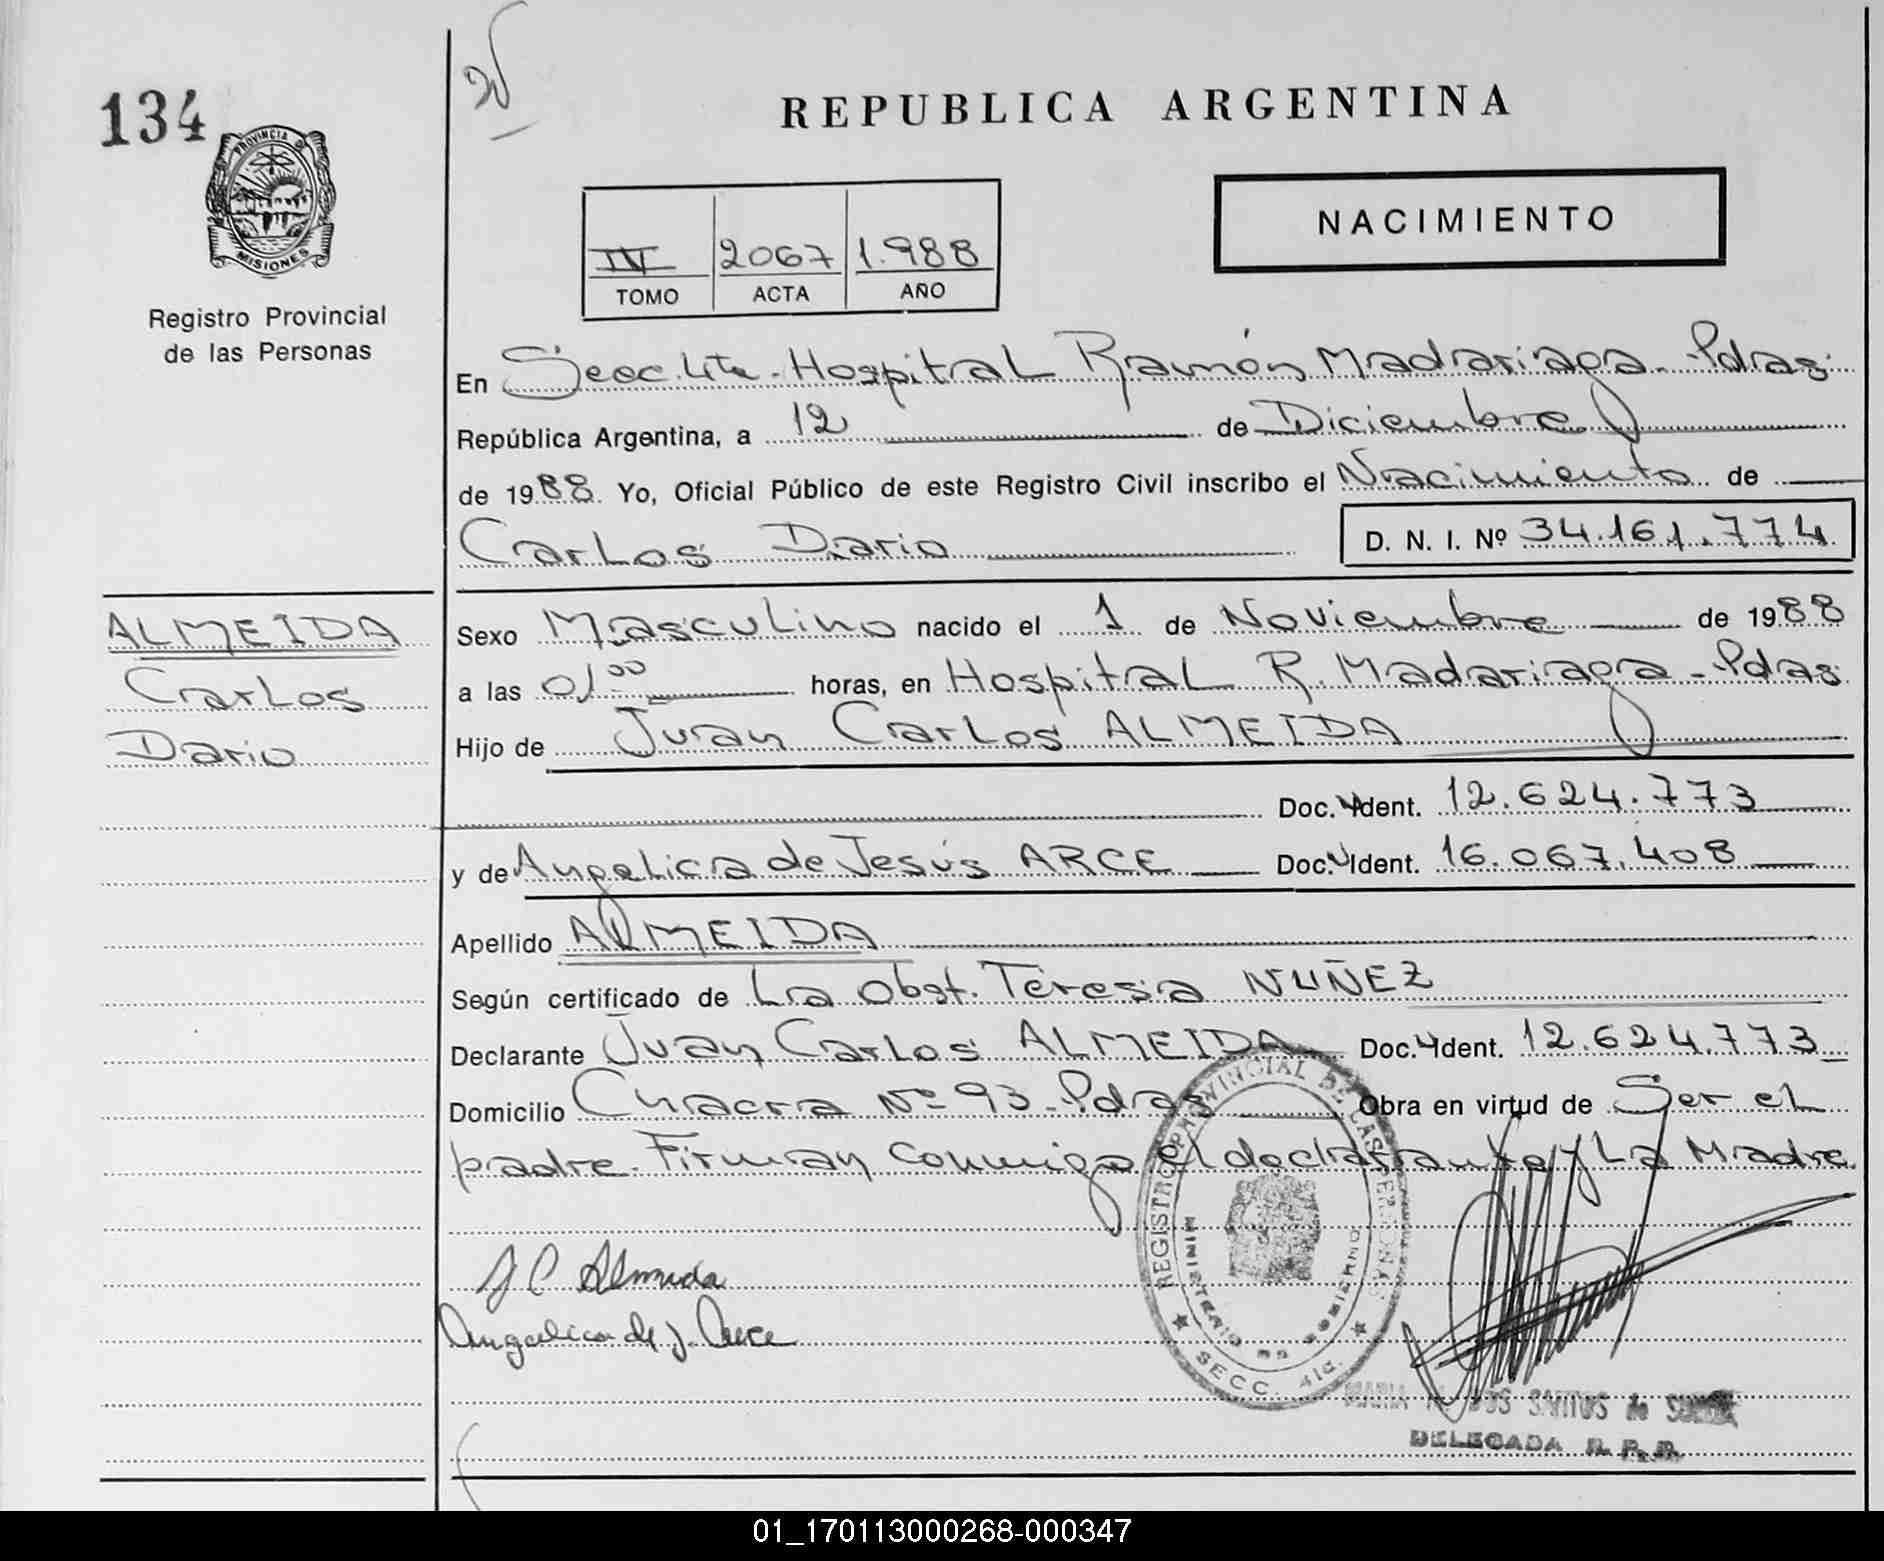 134
REPUBLICA ARGENTINA
PROVINCIA DE
MISIONES
Registro Provincial
de las Personas
NACIMIENTO
IV 2067 1.988
TOMO ACTA AÑO
En Secc. 4ta. Hospital Ramón Madariaga - Pdas.
República Argentina, a 12 de Diciembre
de 1988. Yo, Oficial Público de este Registro Civil inscribo el Nacimiento de
Carlos Dario D. N. I. Nº 34.161.774
ALMEIDA
Carlos
Dario
Sexo Masculino nacido el 1 de Noviembre de 1988
a las 01.00 horas, en Hospital R. Madariaga - Pdas.
Hijo de Juan Carlos ALMEIDA
Doc. Ident. 12.624.773
y de Angelica de Jesús ARCE Doc. Ident. 16.067.408
Apellido ALMEIDA
Según certificado de La Obst. Teresa NUÑEZ
Declarante Juan Carlos ALMEIDA Doc. Ident. 12.624.773
Domicilio Chacra Nº 93 - Pdas Obra en virtud de Ser el
padre. Firman conmigo el declarante y La Madre.
J C Almeida
Angelica de J. Arce
REGISTRO PROVINCIAL DE LAS PERSONAS
MINISTERIO DE GOBIERNO
SECC. 4ta.
MARIA DOS SANTOS de
DELEGADA R. P. P.
01_170113000268-000347